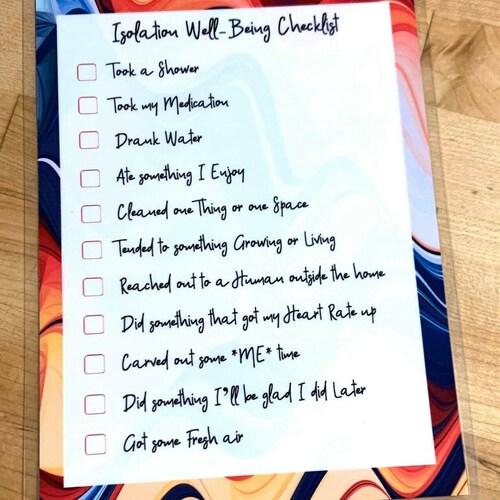 Isolation Well-Being Checklist
Took a Shower
Took my Medication
Drank Water
Ate something I Enjoy
Cleaned one Thing or one Space
Tended to something Growing or Living
Reached out to a Human outside the home
Did something that got my Heart Rate up
Carved out some *ME* time
Did something I'll be glad I did Later
Got some Fresh air